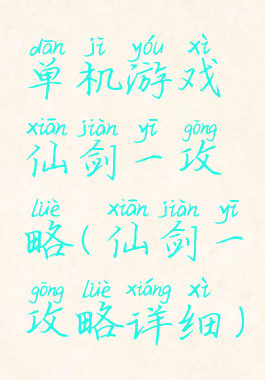 dān jī yóu xì
单机游戏
xiān jiàn yī gōng
仙剑一攻
lüè xiān jiàn yī
略(仙剑一
gōng lüè xiáng xì
攻略详细)